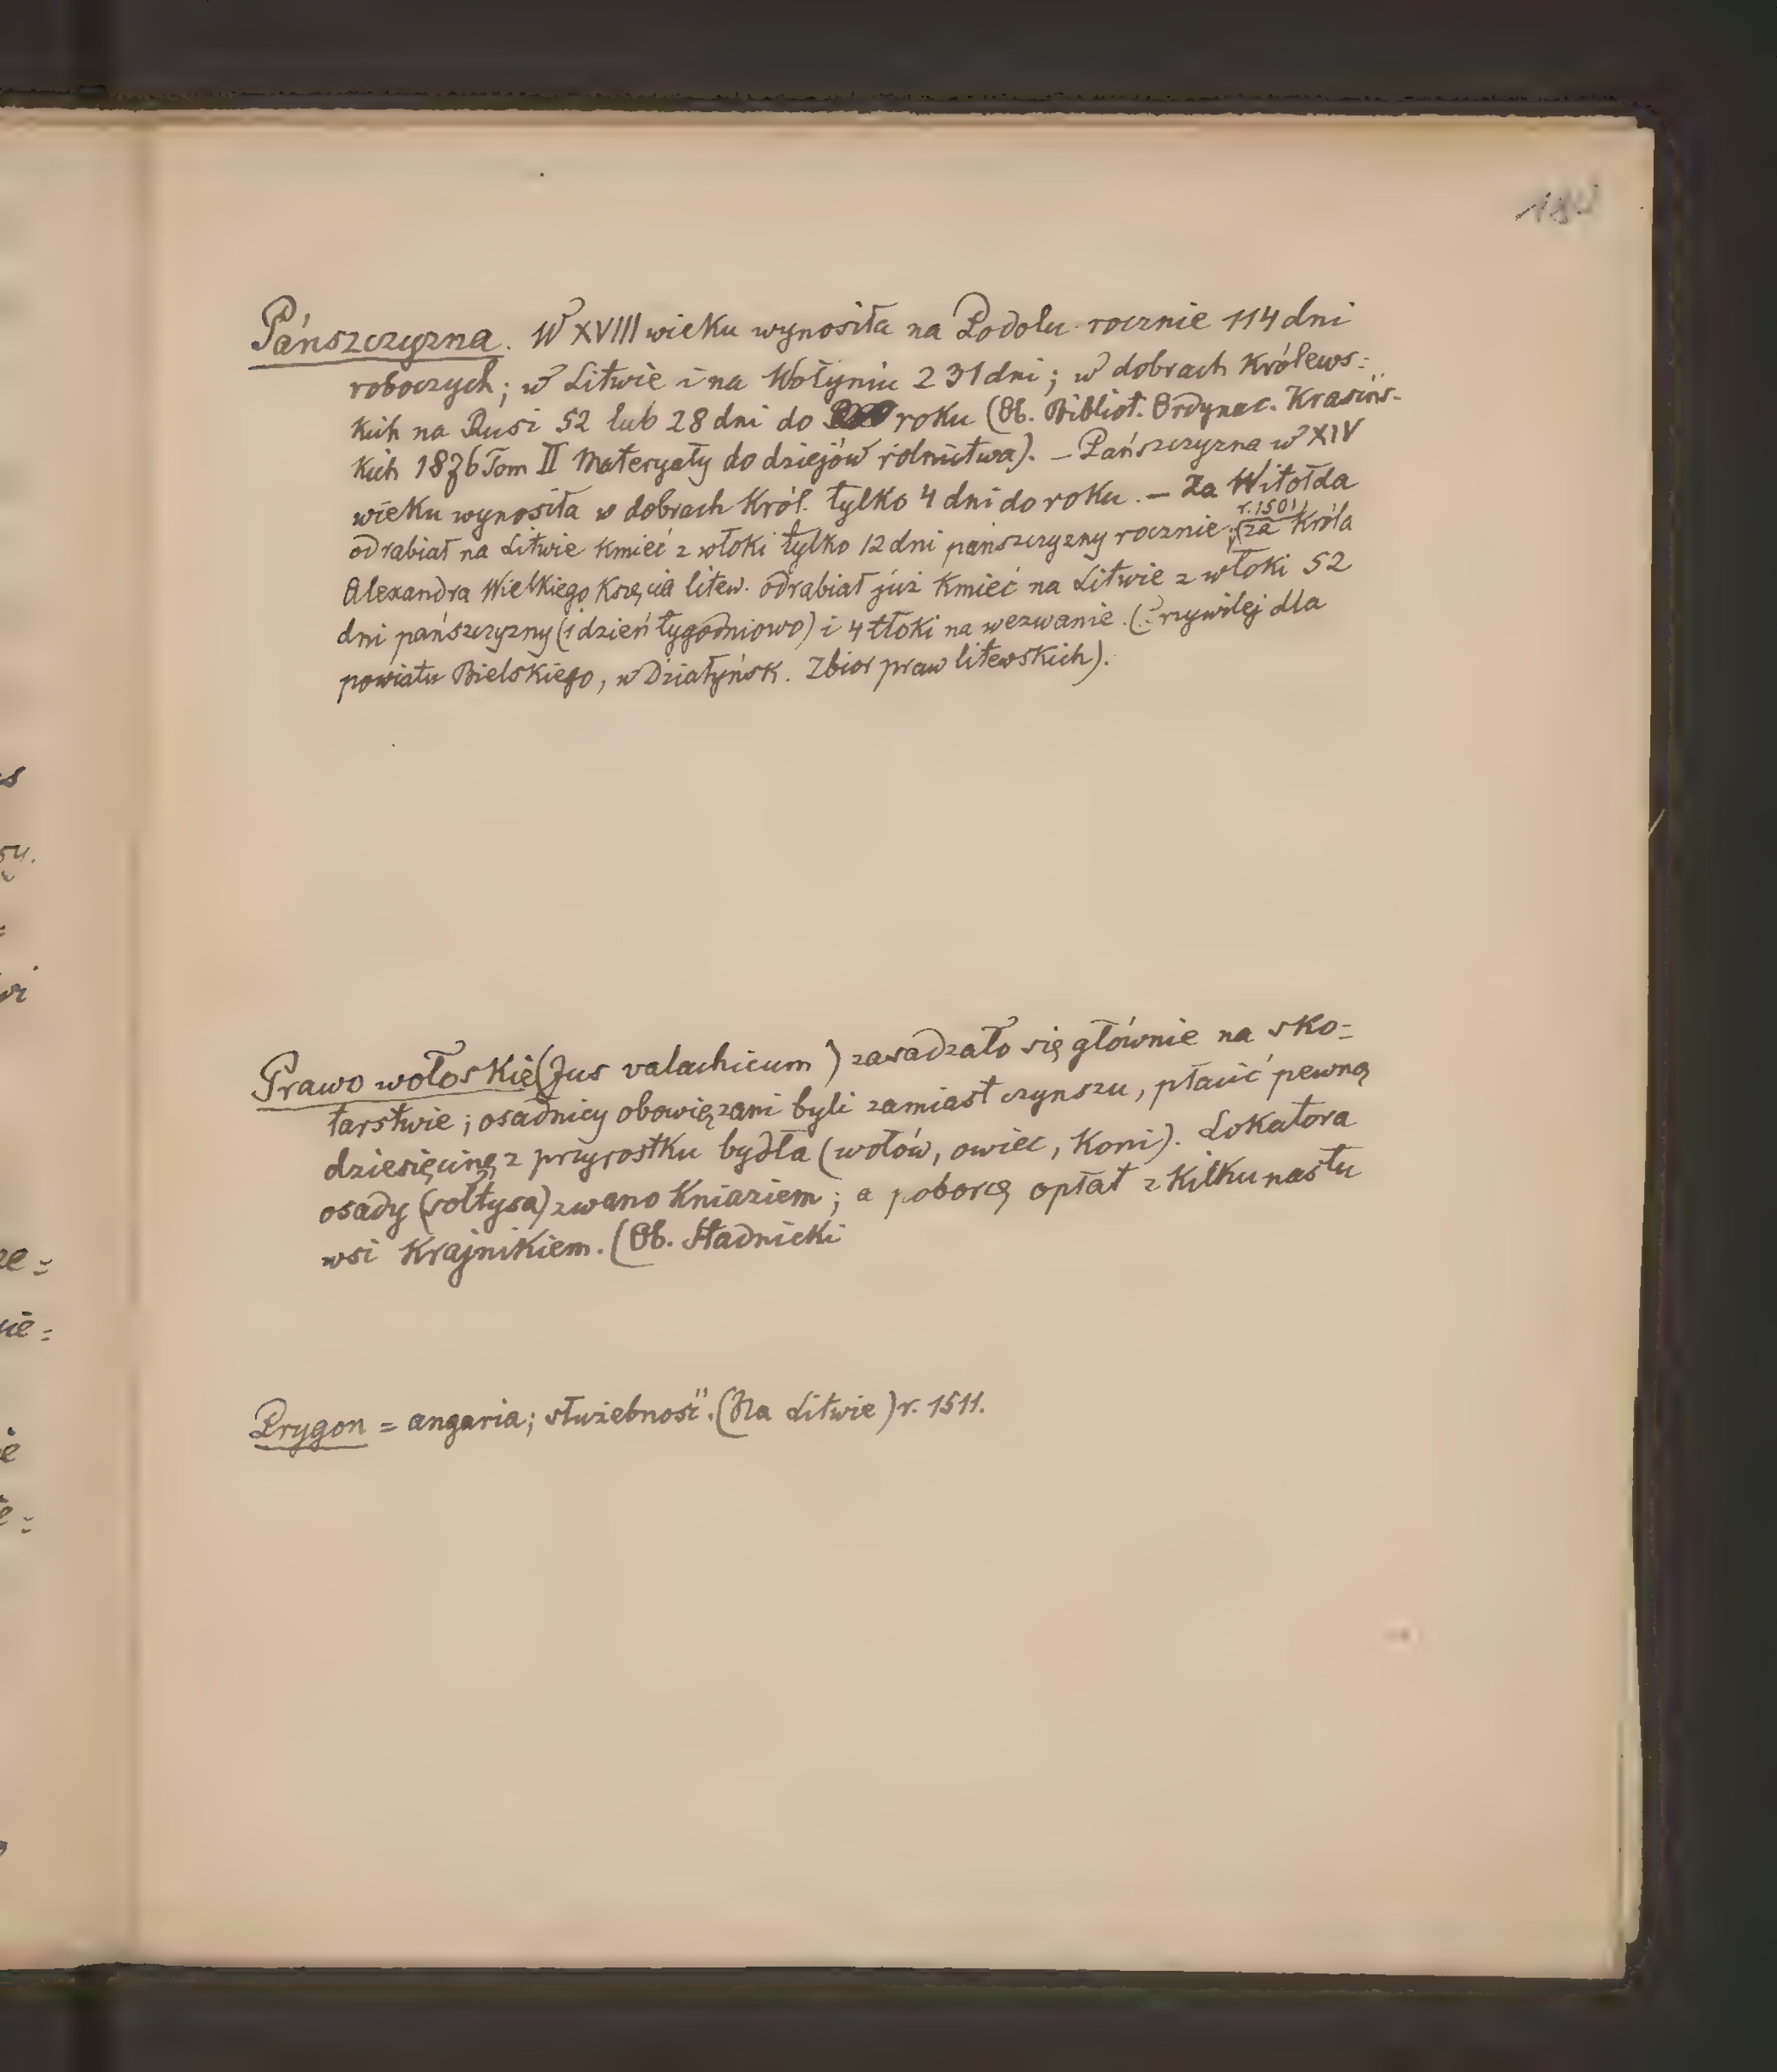 Pańszczyzna. W XVIII wieku wynosiła na Podolu rocznie 114 dni
roboczych; w Litwie i na Wołyniu 231 dni; w dobrach królews:
kich na Rusi 52 lub 28 dni do roku (Ob. Bibliot. Ordynac. Krasińs-
kich 1876 Tom II Materyały do dziejów rolnictwa). – Pańszczyzna w XIV
wieku wynosiła w dobrach Król. tylko 4 dni do roku. – Za Witołda
odrabiał na Litwie kmieć z włoki tylko 12 dni pańszczyzny rocznie; (r. 1501) za Króla
Alexandra Wielkiego Księcia litew. odrabiał już kmieć na Litwie z włoki 52
dni pańszczyzny (1 dzień tygodniowo) i 4 tłoki na wezwanie. (Przywilej dla
powiatu Bielskiego, w Działyńsk. Zbior praw litewskich).
Prawo wołoskie (Jus valachicum) zasadzało się głównie na sko=
tarstwie; osadnicy obowięzani byli zamiast czynszu, płacić pewną
dziesięcinę z przyrostku bydła (wołów, owiec, koni). Lokatora
osady (sołtysa) zwano Kniaziem; a poborcę opłat z kilkunastu
wsi Krajnikiem. (Ob. Stadnicki
Prygon = angaria; służebność. (Na Litwie) r. 1511.